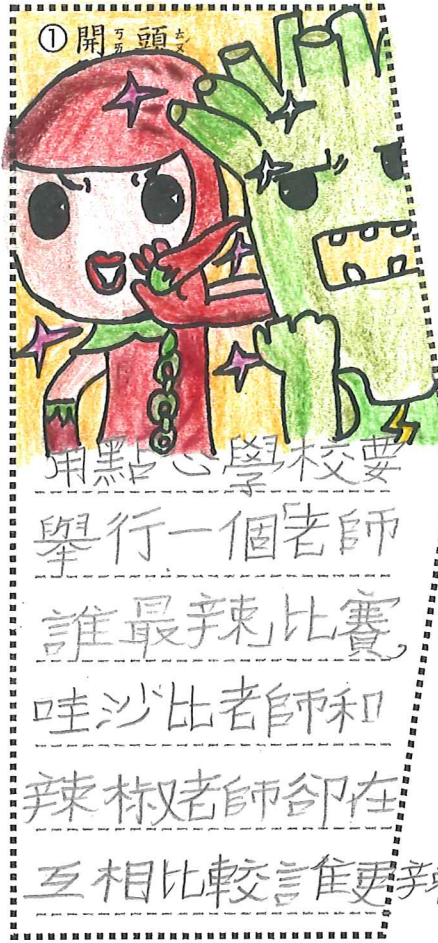 ①開頭
ㄎㄞ ㄊㄡˊ
用點心學校要
舉行一個「老師
誰最辣」比賽，
哇沙比老師和
辣椒老師卻在
互相比較誰更辣